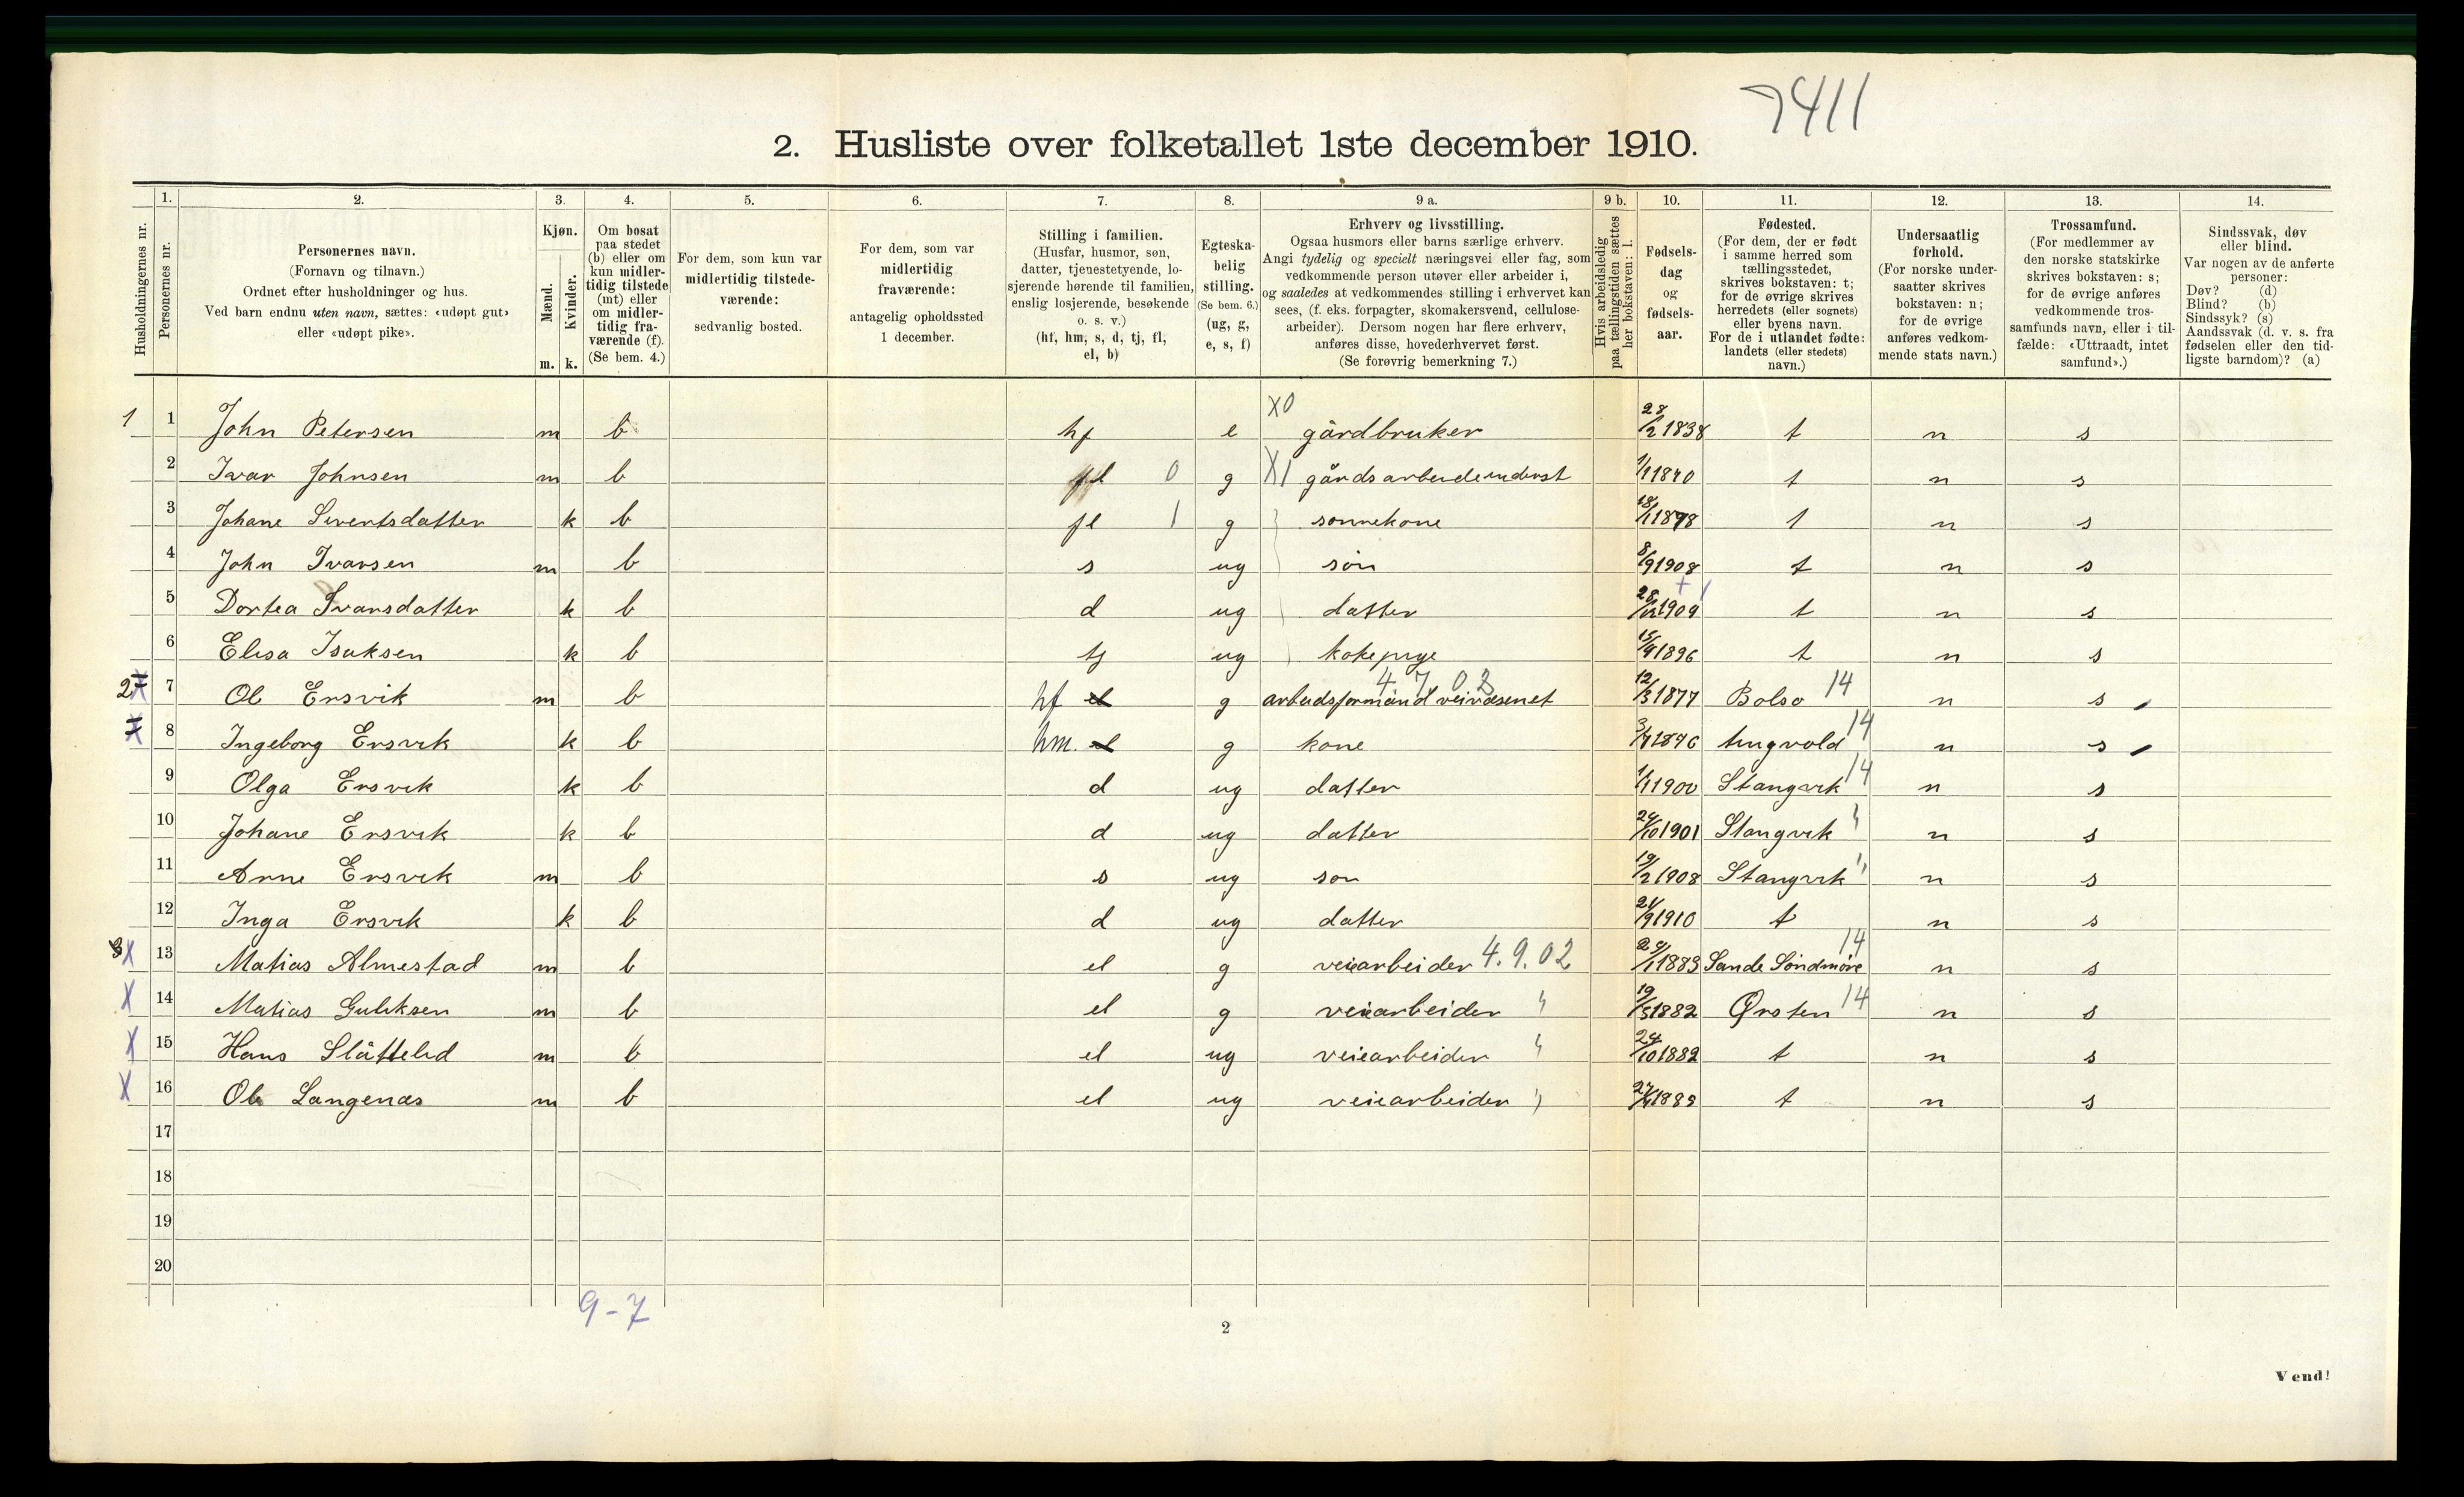 7411
2. Husliste over folketallet 1ste december 1910.
Husholdningernes nr.
1.
Personernes nr.
2.
Personernes navn.
(Fornavn og tilnavn.)
Ordnet efter husholdninger og hus.
Ved barn endnu uten navn, sættes: «udøpt gut»
eller «udøpt pike».
3.
Kjøn.
Mænd.
Kvinder.
m. k.
4.
Om bosat
paa stedet
(b) eller om
kun midler-
tidig tilstede
(mt) eller
om midler-
tidig fra-
værende (f).
(Se bem. 4.)
5.
For dem, som kun var
midlertidig tilstede-
værende:
sedvanlig bosted.
6.
For dem, som var
midlertidig
fraværende:
antagelig opholdssted
1 december.
7.
Stilling i familien.
(Husfar, husmor, søn,
datter, tjenestetyende, lo-
sjerende hørende til familien,
enslig losjerende, besøkende
o. s. v.)
(hf, hm, s, d, tj, fl,
el, b)
8.
Egteska-
belig
stilling.
(Se bem. 6.)
(ug, g,
e, s, f)
9 a.
Erhverv og livsstilling.
Ogsaa husmors eller barns særlige erhverv.
Angi tydelig og specielt næringsvei eller fag, som
vedkommende person utøver eller arbeider i,
og saaledes at vedkommendes stilling i erhvervet kan
sees, (f. eks. forpagter, skomakersvend, cellulose-
arbeider). Dersom nogen har flere erhverv,
anføres disse, hovederhvervet først.
(Se forøvrig bemerkning 7.)
9 b.
Hvis arbeidsledig
paa tællingstiden sættes
her bokstaven: l.
10.
Fødsels-
dag
og
fødsels-
aar.
11.
Fødested.
(For dem, der er født
i samme herred som
tællingsstedet,
skrives bokstaven: t;
for de øvrige skrives
herredets (eller sognets)
eller byens navn.
For de i utlandet fødte:
landets (eller stedets)
navn.)
12.
Undersaatlig
forhold.
(For norske under-
saatter skrives
bokstaven: n;
for de øvrige
anføres vedkom-
mende stats navn.)
13.
Trossamfund.
(For medlemmer av
den norske statskirke
skrives bokstaven: s;
for de øvrige anføres
vedkommende tros-
samfunds navn, eller i til-
fælde: «Uttraadt, intet
samfund».)
14.
Sindssvak, døv
eller blind.
Var nogen av de anførte
personer:
Døv? (d)
Blind? (b)
Sindssyk? (s)
Aandssvak (d. v. s. fra
fødselen eller den tid-
ligste barndom)? (a)
1 1 John Petersen m b hf e X0 gårdbruker 28/2 1838 t n s
2 Ivar Johnsen m b fl 0 g X1 1/1 1870 t n s
3 Johane Sivertsdatter k b fl 1 g sønnekone 18/11 1878 t n s
4 John Ivarsen m b s ug søn 8/9 1908 t n s
5 Dortea Ivarsdatter k b d ug datter 28/12 1909 t n s
6 Elisa Isaksen k b tj ug kokepige 15/9 1896 t n s
2 X 7 Ole Ersvik m b hf el g arbeidsformand veivæsenet 4 7 02 12/3 1877 Bolsø 14 n s
X 8 Ingeborg Ersvik k b hm. el g kone 3/7 1876 14 n s
9 Olga Ersvik k b d ug datter 1/1 1900 Stangvik 14 n s
10 Johane Ersvik k b d ug datter 24/10 1901 Stangvik n s
11 Arne Ersvik m b s ug søn 19/2 1908 Stangvik n s
12 Inga Ersvik k b d ug datter 21/9 1910 t n s
3 X 13 Matias Almestad m b el g veiearbeider 4.9.02 29/1 1883 Sande Søndmøre 14 n s
X 14 Matias Guliksen m b el g veiearbeider 19/5 1882 Ørsten 14 n s
X 15 Hans Slåttelid m b el ug veiearbeider 24/10 1882 t n s
X 16 Ole Langenæs m b el ug veiearbeider t n s
17
18
19
20
9 - 7
2
Vend!